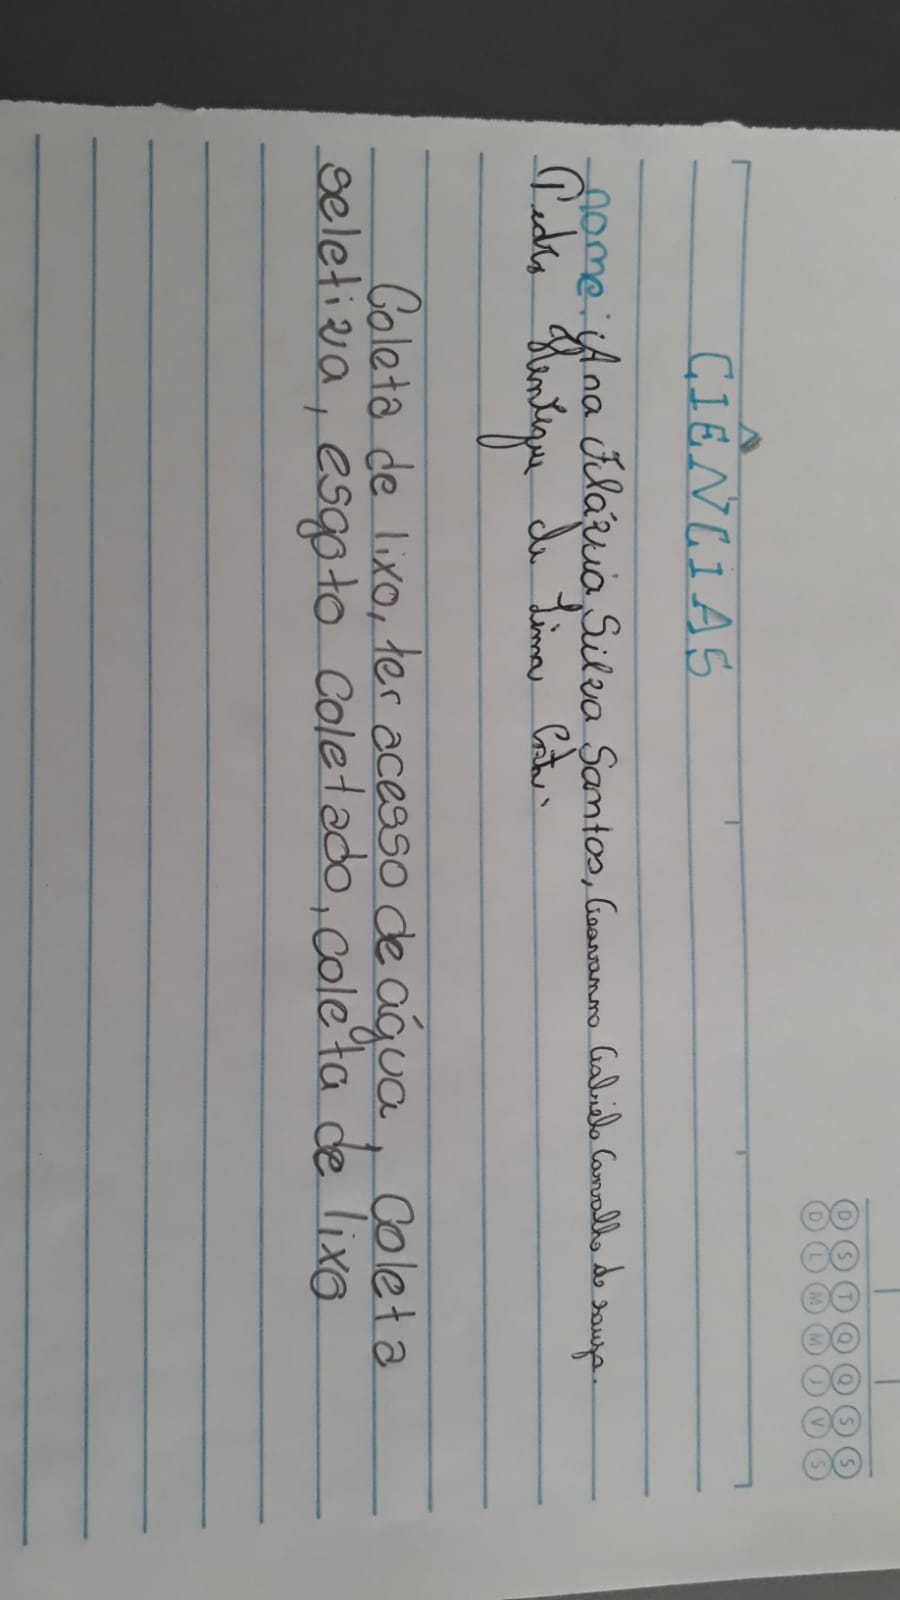 D S T Q Q S S
D L M M J V S
CIÊNCIAS
nome: Ana Flávia Silva Santos, Geovanna Gabriela Carvalho de Souza.
Pedro Henrique de Lima Costa.
Coleta de lixo, ter acesso de água, Coleta
seletiva, esgoto Coletado, coleta de lixo